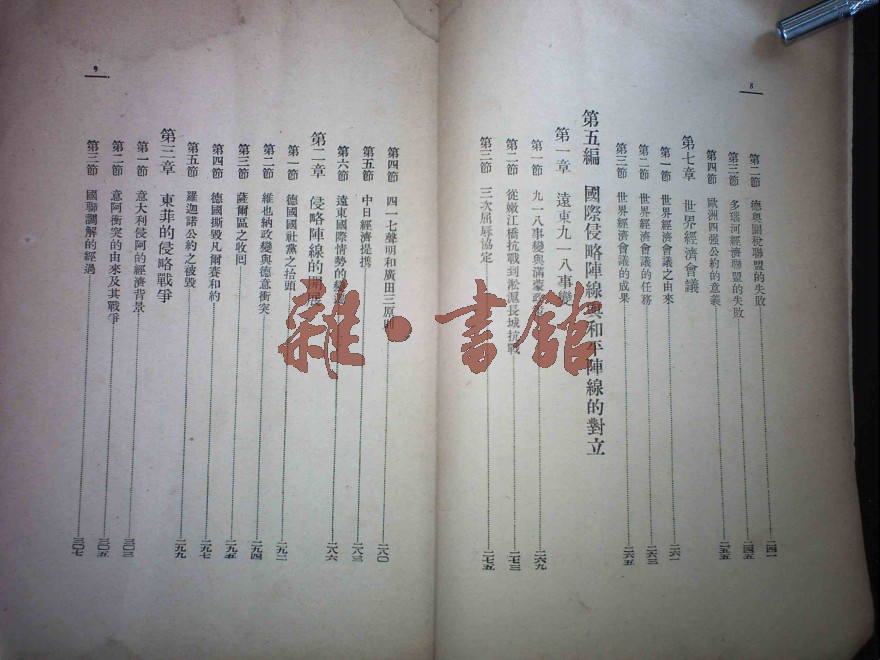 8
第二節 德奧關稅聯盟的失敗 二四一
第三節 多瑙河經濟聯盟的失敗 二四五
第四節 歐洲四强公約的意義 二五五
第七章 世界經濟會議
第一節 世界經濟會議之由來 二六一
第二節 世界經濟會議的任務 二六三
第三節 世界經濟會議的成果 二六五
第五編 國際侵略陣線與和平陣線的對立
第一章 遠東九一八事變
第一節 九一八事變與滿蒙政策 二六九
第二節 從嫩江橋抗戰到淞滬長城抗戰 二七三
第三節 三次屈辱協定 二七五
9
第四節 四一七聲明和廣田三原則 二八〇
第五節 中日經濟提携 二八三
第六節 遠東國際情勢的 二八六
第二章 侵略陣線的開展
第一節 德國國社黨之抬頭 二九二
第二節 維也納政變與德意衝突 二九四
第三節 薩爾區之收回 二九五
第四節 德國撕毀凡爾賽和約 二九七
第五節 羅迦諾公約之被毀 二九九
第三章 東非的侵略戰爭
第一節 意大利侵阿的經濟背景 三〇三
第二節 意阿衝突的由來及其戰爭 三〇五
第三節 國聯調解的經過 三〇七
雜·書館